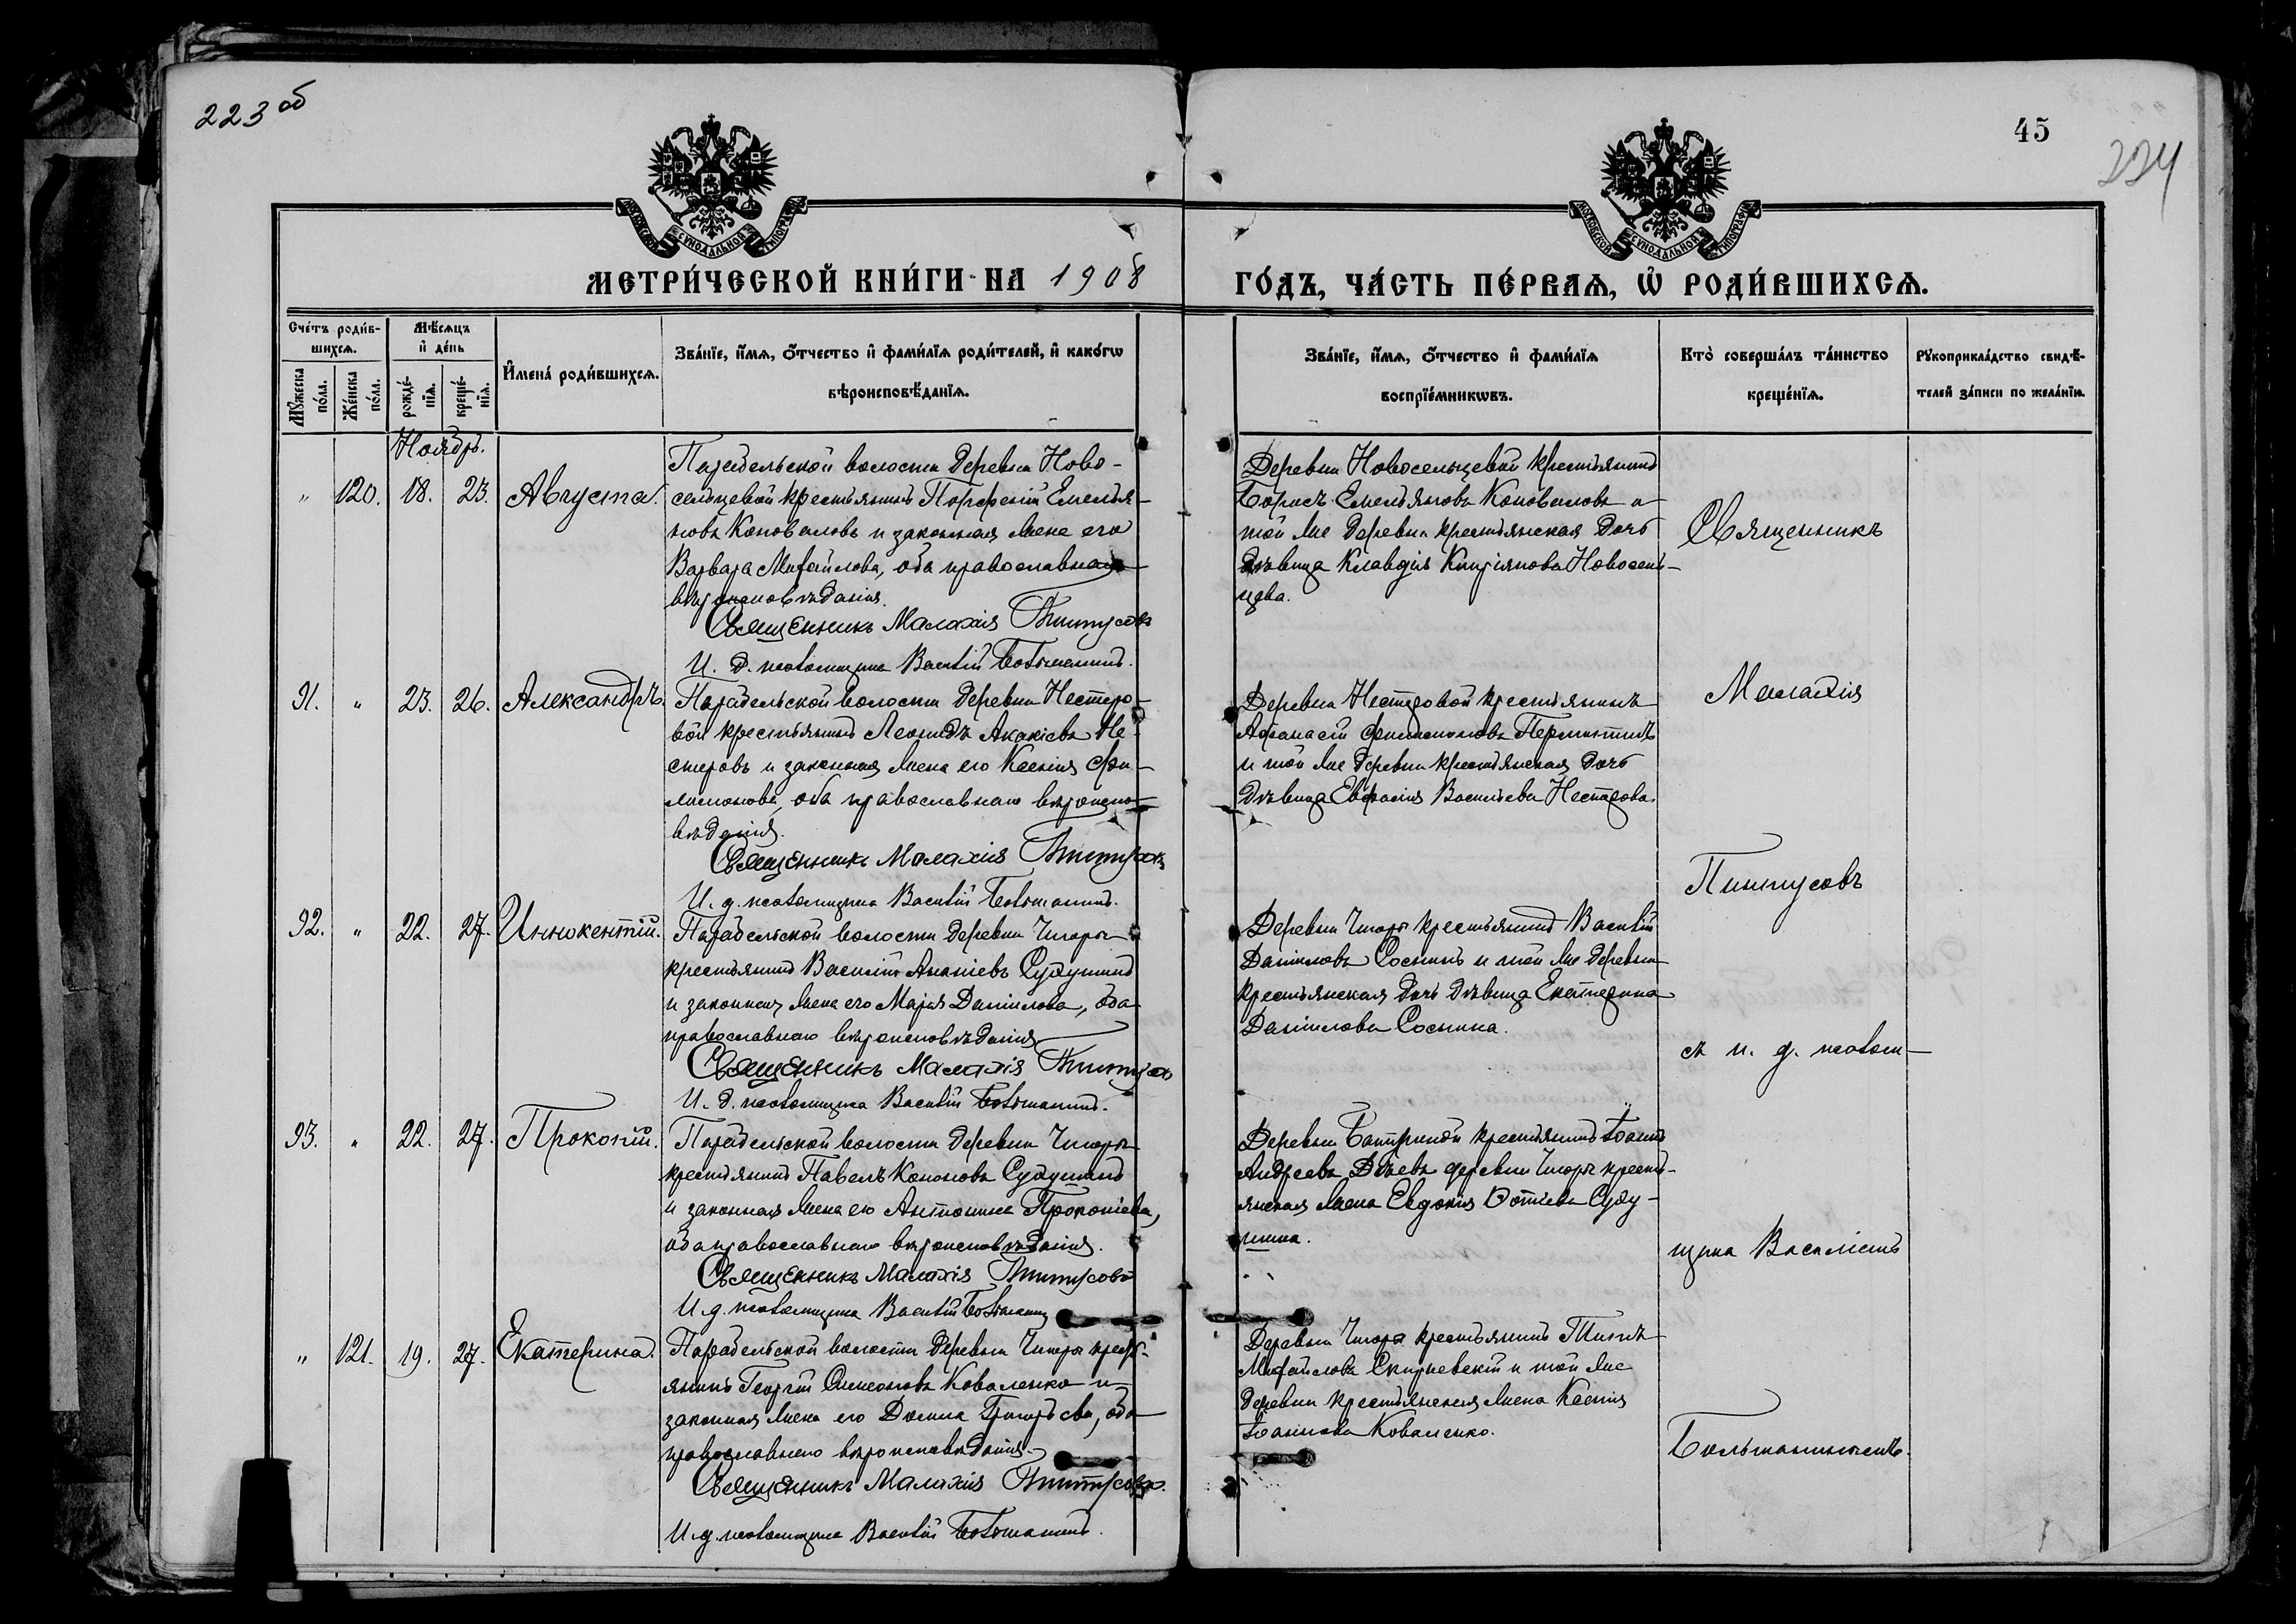 223 об
45
224
МОСКОВСКОЙ СУНОДАЛЬНОЙ ТИПОГРАФІИ
МОСКОВСКОЙ СУНОДАЛЬНОЙ ТИПОГРАФІИ
МЕТРИ́ЧЕСКОЙ КНИ́ГИ НА 1908
ГО́ДЪ, ЧА́СТЬ ПЕ́РВАѦ, Ѡ҆ РОДИ́ВШИХСѦ.
Сче́тъ роди́в-
шихсѧ.
Мѣ́сѧцъ
и҆ де́нь
Мꙋ́жеска по́ла.
Же́нска по́ла.
рожде́-
нїѧ.
креще́-
нїѧ.
И҆мена̀ роди́вшихсѧ.
Зва́нїе, и҆́мѧ, ѻ҆́тчество и҆ фами́лїѧ роди́телей, и҆ како́гѡ
вѣроисповѣ́данїѧ.
Зва́нїе, и҆́мѧ, ѻ҆́тчество и҆ фами́лїѧ
воспрїе́мникѡвъ.
Кто̀ соверша́лъ та́инство
креще́нїѧ.
Рꙋкоприкла́дство свидѣ́-
телей за́писи по жела́нїю.
Ноябрь.
" 120. 18. 23. Августа.
Парабельской волости деревни Ново-
сельцевой крестьянинъ Порфирій Емелья-
новъ Коноваловъ и законная жена его
Варвара Михайлова, оба православнаго
вѣроисповѣданія.
Священникъ Малахія Пинтусовъ
И. д. псаломщика Василій Большанинъ.
Деревни Новосельцевой крестьянинъ
Борисъ Емельяновъ Коноваловъ и
той же деревни крестьянская дочь
дѣвица Клавдія Кипріянова Новосель-
цева.
91. " 23. 26. Александръ.
Парабельской волости деревни Нестеро-
вой крестьянинъ Леонидъ Акакіевъ Не-
стеровъ и законная жена его Ксенія Фи-
лимонова, оба православнаго вѣроиспо-
вѣданія.
Священникъ Малахія Пинтусовъ
И. д. псаломщика Василій Большанинъ.
Деревни Нестеровой крестьянинъ
Афанасій Филимоновъ
и той же деревни крестьянская дочь
дѣвица Евфалія Васильева Нестерова.
92. " 22. 27. Иннокентій.
Парабельской волости деревни Чигоры
крестьянинъ Василій Ананіевъ Судушинъ
и законная жена его Марія Даніилова, оба
православнаго вѣроисповѣданія
Священникъ Малахія Пинтусовъ
И. д. псаломщика Василій Большанинъ.
Деревни Чигоры крестьянинъ Василій
Даніиловъ Соснинъ и той же деревни
крестьянская дочь дѣвица Екатерина
Даніилова Соснина.
93. " 22. 27. Прокопій.
Парабельской волости деревни Чигоры
крестьянинъ Павелъ Кононовъ Судушинъ
и законная жена его Антонина Прокопіева,
оба православнаго вѣроисповѣданія.
Священникъ Малахія Пинтусовъ
И. д. псаломщика Василій Большанинъ
Деревни Батуриной крестьянинъ Іоаннъ
Андреевъ деревни Чигоры кресть-
янская жена Евдокія Фотіева Суду-
шина.
" 121. 19. 27. Екатерина.
Парабельской волости деревни Чигоры кресть-
янинъ Георгій Симеоновъ Коваленко и
законная жена его Домна Григорьева, оба
православнаго вѣроисповѣданія.
Священникъ Малахія Пинтусовъ.
И. д. псаломщика Василій Большанинъ.
Деревни Чигоры крестьянинъ Титъ
Михайловъ и той же
деревни крестьянская жена Ксенія
Іоаннова Коваленко.
Священникъ
Малахія
Пинтусовъ
съ и. д. псалом-
щика Василіемъ
Большанинымъ.